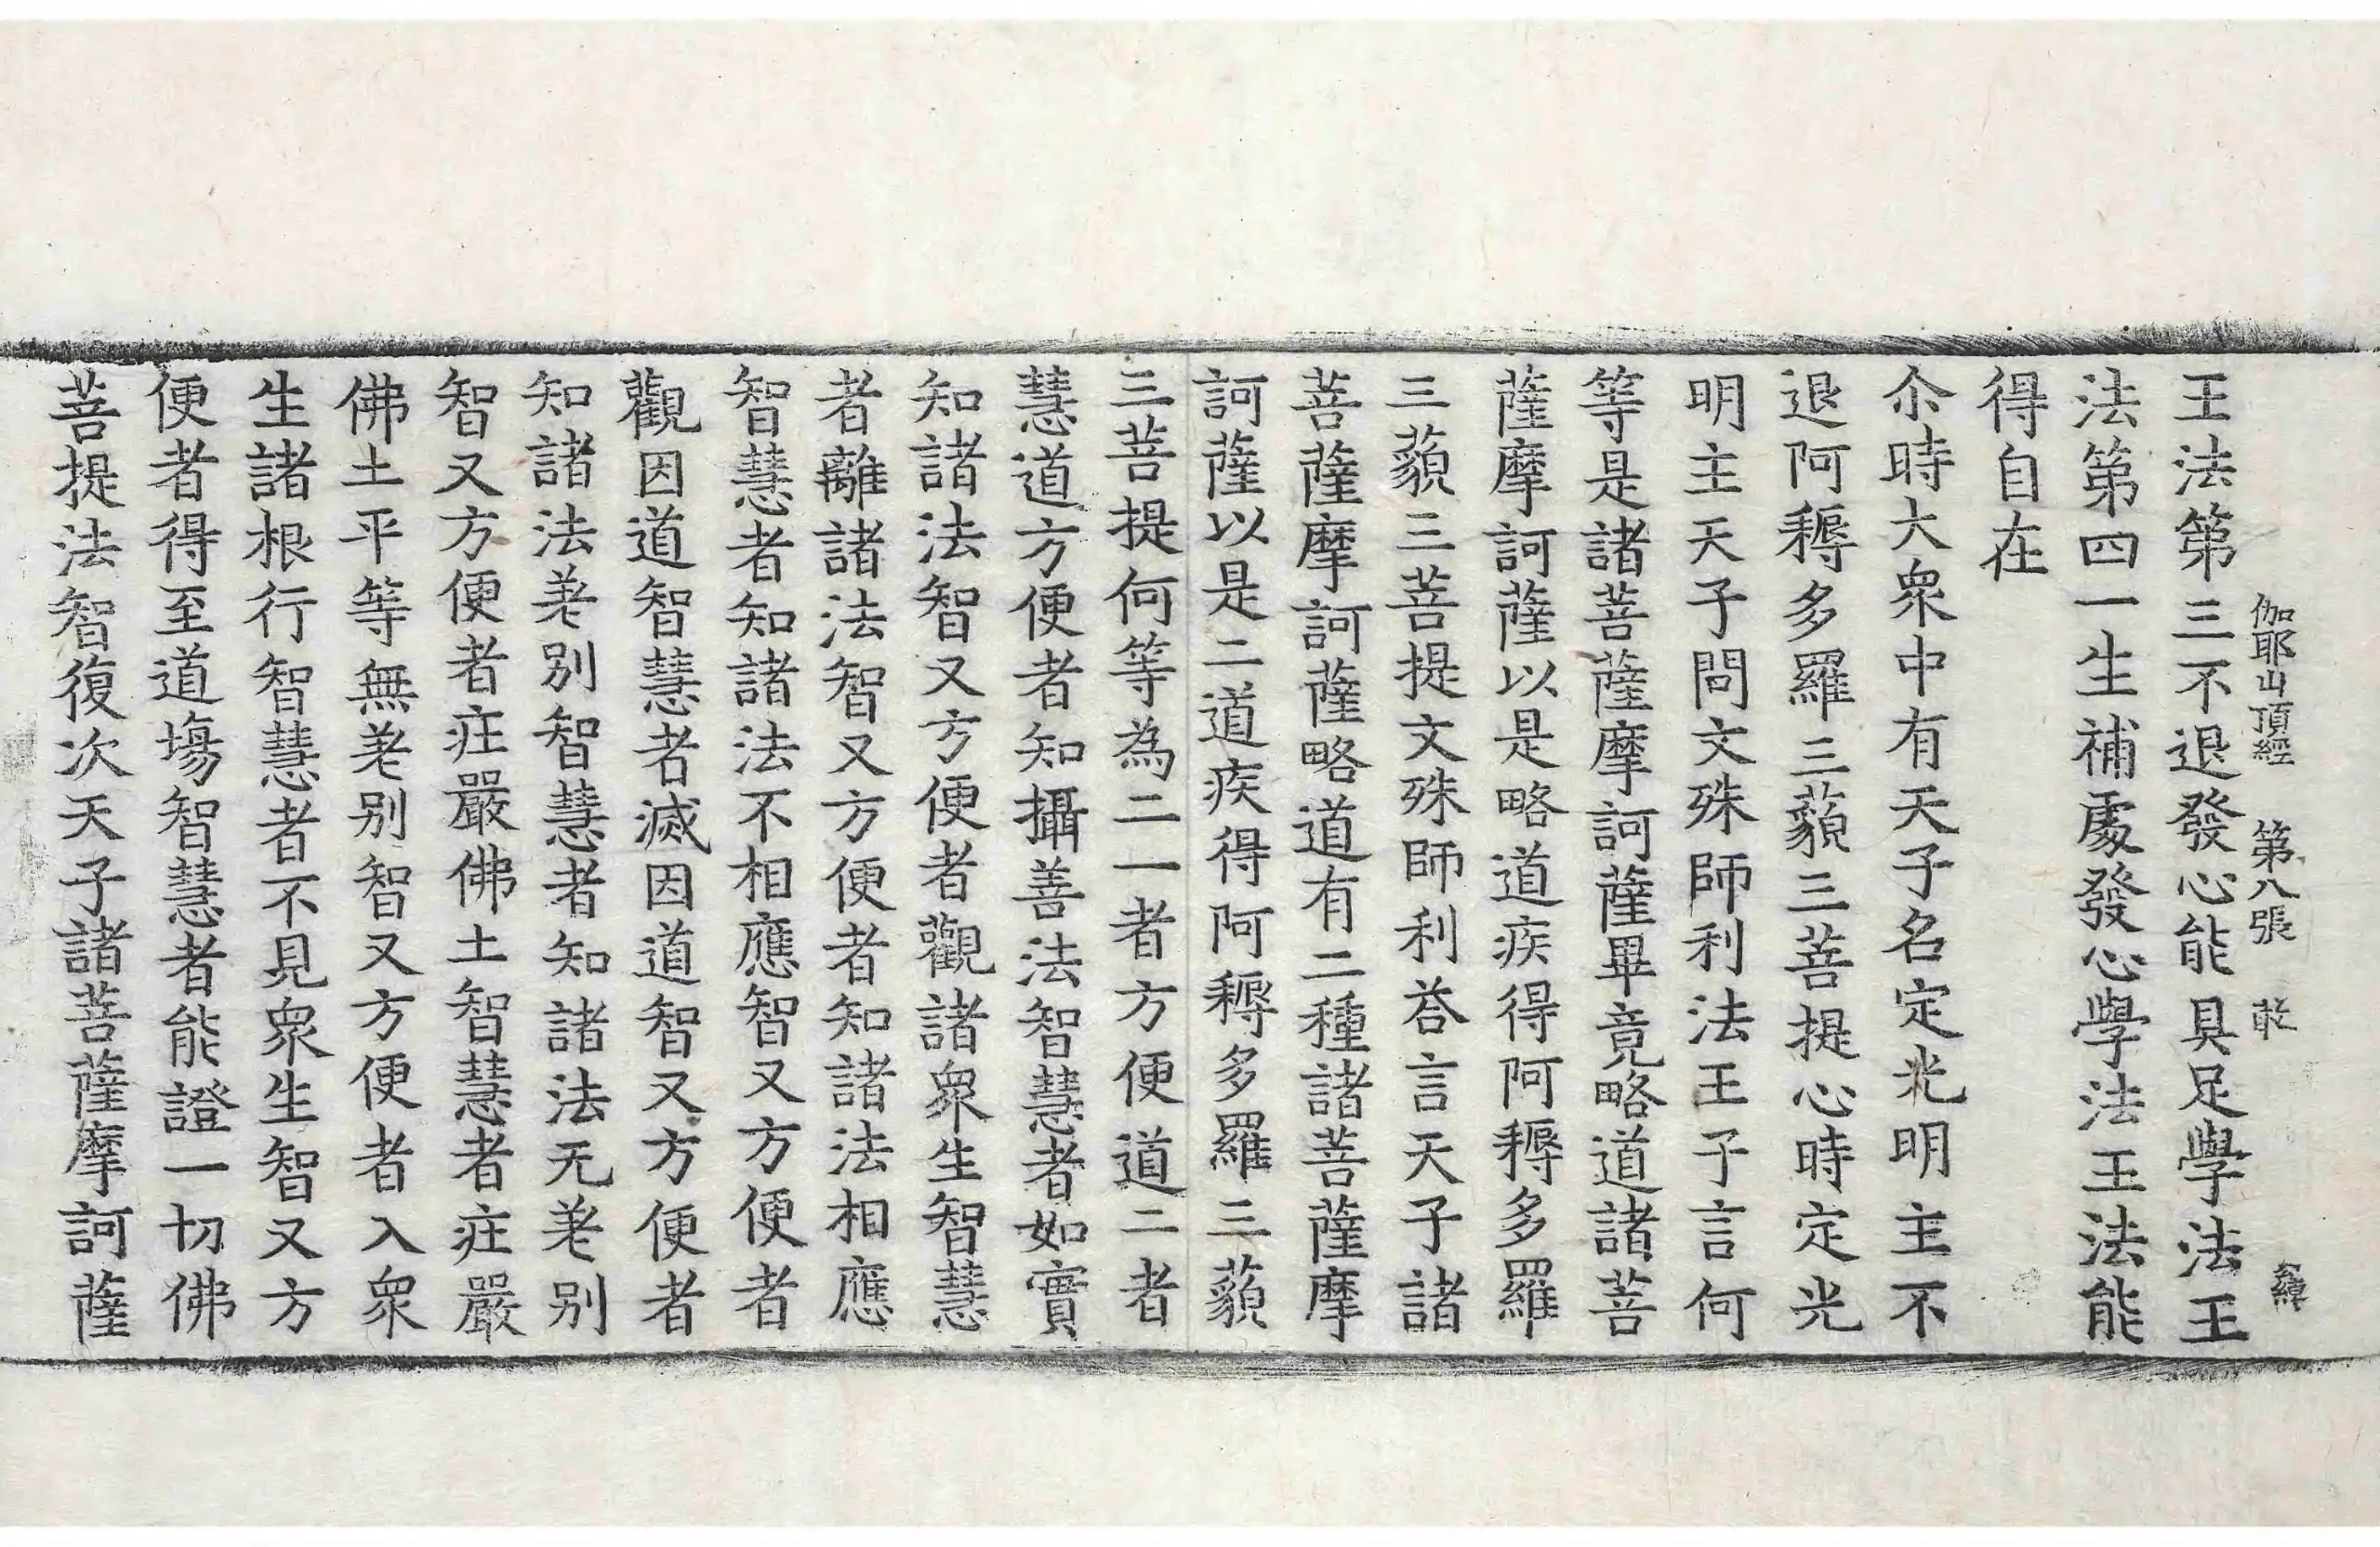 伽耶山頂經 第八張 敢
王法第三不退發心能具足學法王
法第四一生補處發心學法王法能
得自在
尒時大衆中有天子名定光明主不
退阿耨多羅三藐三菩提心時定光
明主天子問文殊師利法王子言何
等是諸菩薩摩訶薩畢竟略道諸菩
薩摩訶薩以是略道疾得阿耨多羅
三藐三菩提文殊師利荅言天子諸
菩薩摩訶薩略道有二種諸菩薩摩
訶薩以是二道疾得阿耨多羅三藐
三菩提何等為二一者方便道二者
慧道方便者知攝善法智慧者如實
知諸法智又方便者觀諸衆生智慧
者離諸法智又方便者知諸法相應
智慧者知諸法不相應智又方便者
觀因道智慧者滅因道智又方便者
知諸法差別智慧者知諸法无差別
智又方便者庄嚴佛土智慧者庄嚴
佛土平等無差別智又方便者入衆
生諸根行智慧者不見衆生智又方
便者得至道場智慧者能證一切佛
菩提法智復次天子諸菩薩摩訶薩